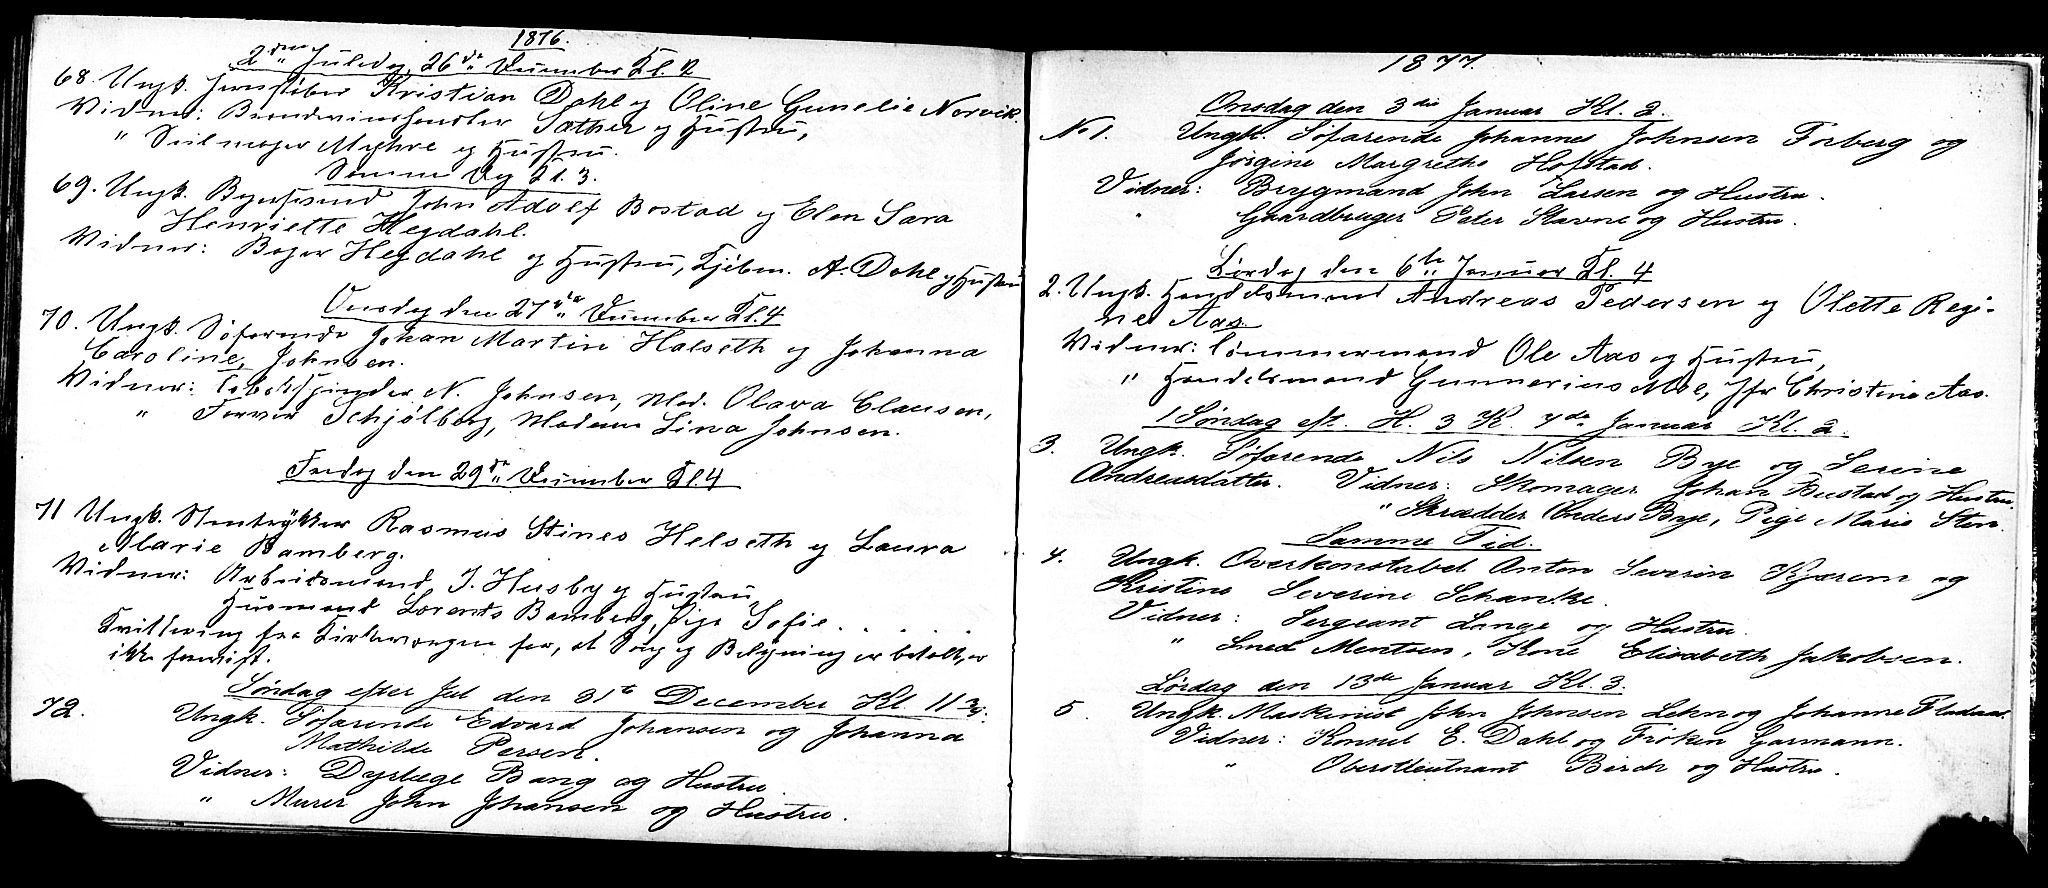 1876.
2den Juledag, 26de December Kl. 2
68. Ungk. Jernstøber Kristian Dahl og Oline Gunelie Norvik.
Vidner: Brændevinshandler Sæther og Hustru,
" Seilmager Myhre og Hustru.
Samme Dag Kl. 3.
69. Ungk. John Adolf Bostad og Elen Sara
Henriette Hegdahl.
Vidner: Bager Hegdahl og Hustru, Kjøbm. A. Dahl og Hustru
Onsdag den 27de December Kl. 4
70. Ungk. Søfarende Johan Martin Halseth og Johanna
Caroline Johnsen.
Vidner: N. Johnsen, Mad. Olava Clausen,
" Farver Schjølberg, Madam Lina Johnsen.
Fredag den 29de December Kl. 4
71 Ungk. Stentrykker Rasmus Stines Helseth og Laura
Marie Bamberg.
Vidner: Arbeidsmand J. Husby og Hustru
Husmand Lorents Bamberg, Pige Sofie . . . . .
Kvittering fra Kirkeværgen for, at Sang og Belysning er betalt, er
ikke forevist.
Søndag efter Jul den 31te December Kl. 11 3/4.
72. Ungk. Søfarende Edvard Johansen og Johanna
Mathilde Persen.
Vidner: Dyrlæge Bang og Hustru
" Murer John Johansen og Hustru.
1877.
Onsdag den 3die Januar Kl. 2.
No 1. Ungk. Søfarende Johannes Johnsen Forberg og
Jørgine Margrethe Hofstad.
Vidner: Brygmand John Larsen og Hustru.
" Gaardbruger Peter Stavne og Hustru.
Lørdag den 6te Januar Kl. 4
2. Ungk. Handelsmand Andreas Pedersen og Olette Regi-
ne Aas.
Vidner: Tømmermand Ole Aas og Hustru,
" Handelsmand Gunnerius Moe, Jfr Christine Aas.
1 Søndag eft. H. 3 K. 7de Januar Kl. 2.
3. Ungk. Søfarende Nils Nilsen Bye og Serine
Andreasdatter. Vidner: Skomager Johan Bustad og Hustru.
" Skrædder Anders Bye, Pige Marie Sten.
Samme Tid.
4. Ungk. Overkonstabel Anton Severin Kjærem og
Kristine Severine Schanke.
Vidner: Sergeant Lange og Hustru.
" Smed Mentsen, Kone Elisabeth Jakobsen.
Lørdag den 13de Januar Kl. 3.
5. Ungk. Maskinist John Johnsen Lehn og Johanne Fladaas.
Vidner: Konsul E. Dahl og Frøken Garmann.
" Oberstleutnant Birch og Hustru.